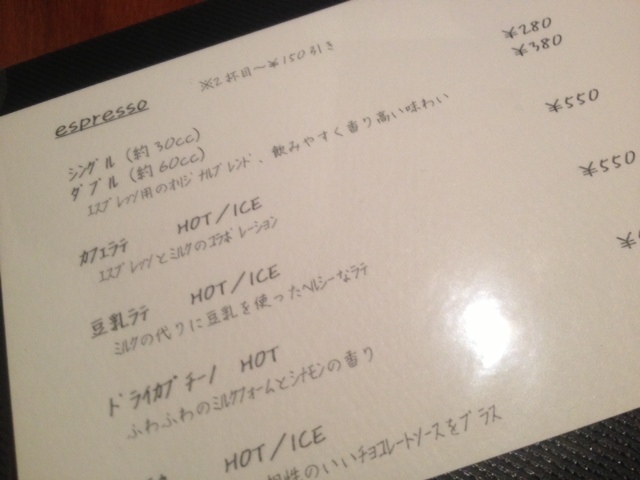 espresso ※2杯目〜¥150引き
シングル (約30cc) ¥280
ダブル (約60cc) ¥380
エスプレッソ用のオリジナルブレンド、飲みやすく香り高い味わい
カフェラテ HOT/ICE ¥550
エスプレッソとミルクのコラボレーション
豆乳ラテ HOT/ICE ¥550
ミルクの代りに豆乳を使ったヘルシーなラテ
ドライカプチーノ HOT
ふわふわのミルクフォームとシナモンの香り
HOT/ICE
相性のいいチョコレートソースをプラス